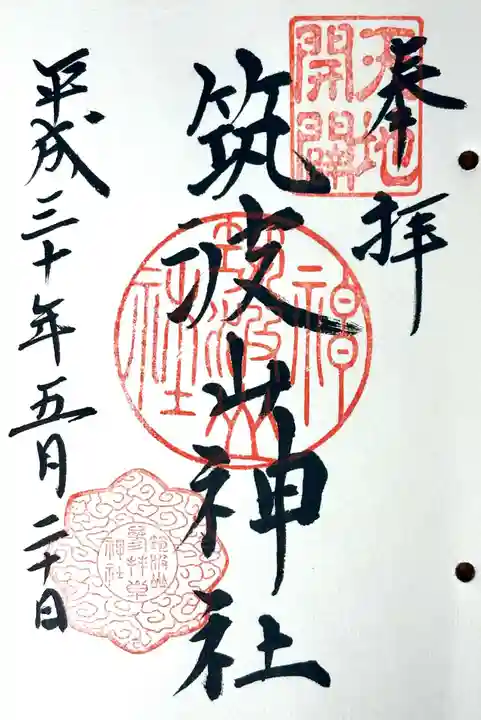 奉拝
天地
開闢
筑波山神社
筑波山
神社
平成三十年五月二十日
筑波山
参拝章
神社